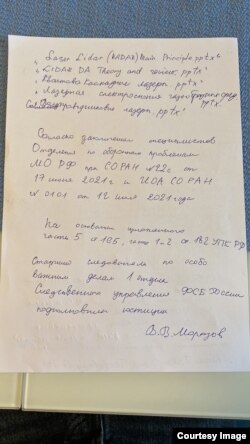 „Lazer Lidar (LADAR) Main Principle.pptx“
„LIDAR DA Theory and review.pptx“
„Квантово Каскадные лазеры.pptx“
„Лазерная спектроскопия газообразных сред.pptx“
лазеры.pptx“
Согласно заключениям специалистов
Отделения по оборонным проблемам
МО РФ при СО РАН №22с от
17 июня 2021г и ИОА СО РАН
№0101 от 12 июля 2021 года
На основании изложенного
часть 5 ст 165, часть 1-2 ст 182 УПК РФ
Старший следователь по особо
важным делам 1 отдела
Следственного управления ФСБ России
подполковник юстиции
В.В. Морозов
Courtesy Image